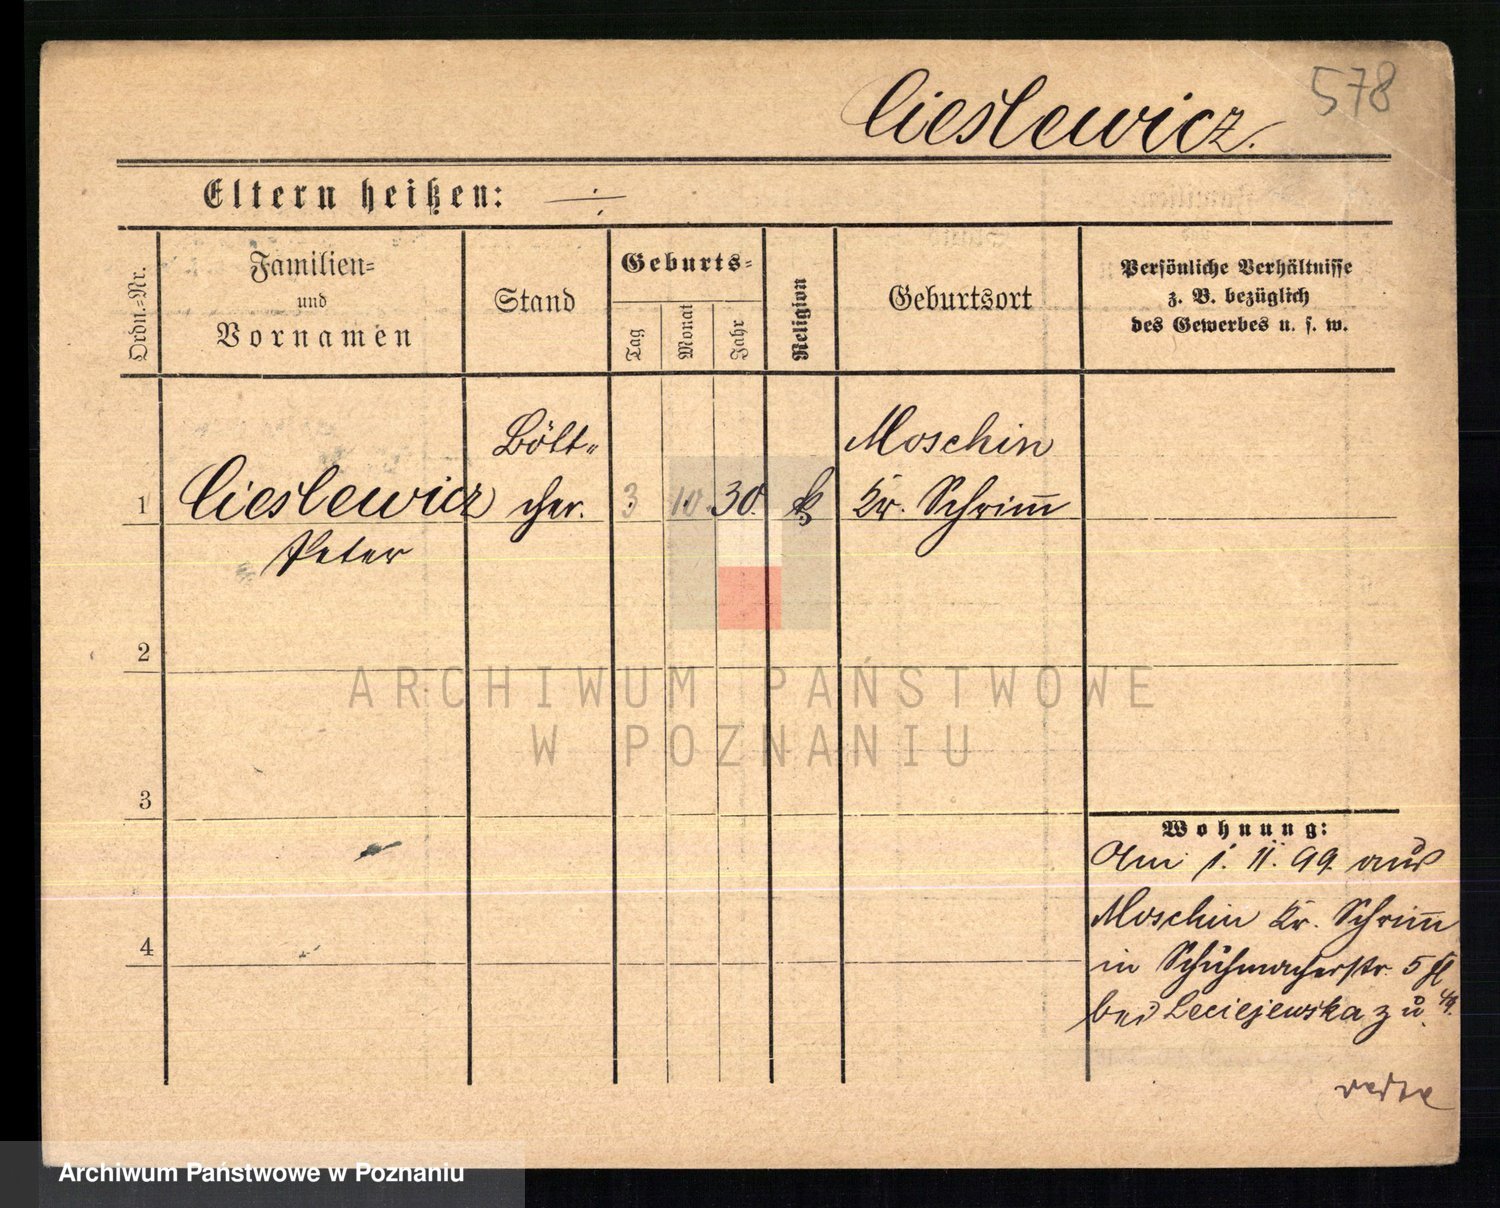 578
Cieslewicz.
Eltern heißen: ÷
Ordn.-Nr.
Familien-
und
Vornamen
Stand
Geburts-
Tag
Monat
Jahr
Religion
Geburtsort
Persönliche Verhältnisse
z. B. bezüglich
des Gewerbes u. s. w.
1
Cieslewicz
Peter
Bött-
cher.
3 10. 30. k
Moschin
Kr. Schrim̅
2
3
4
Wohnung:
Am 1. 11. 99 aus
Moschin Kr. Schrim̅
in Schuhmacherstr. 5
bei Leciejewska zu
ARCHIWUM PAŃSTWOWE
W POZNANIU
Archiwum Państwowe w Poznaniu